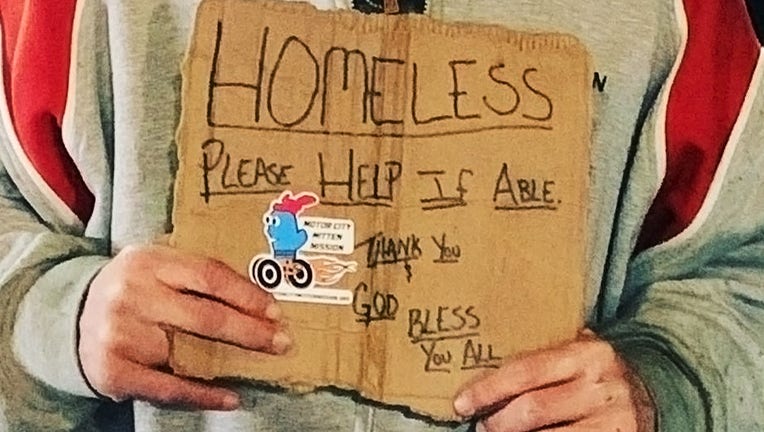 HOMELESS
PLEASE HELP IF ABLE.
MOTOR CITY
MITTEN
MISSION
THANK YOU
&
GOD
BLESS
YOU ALL
N